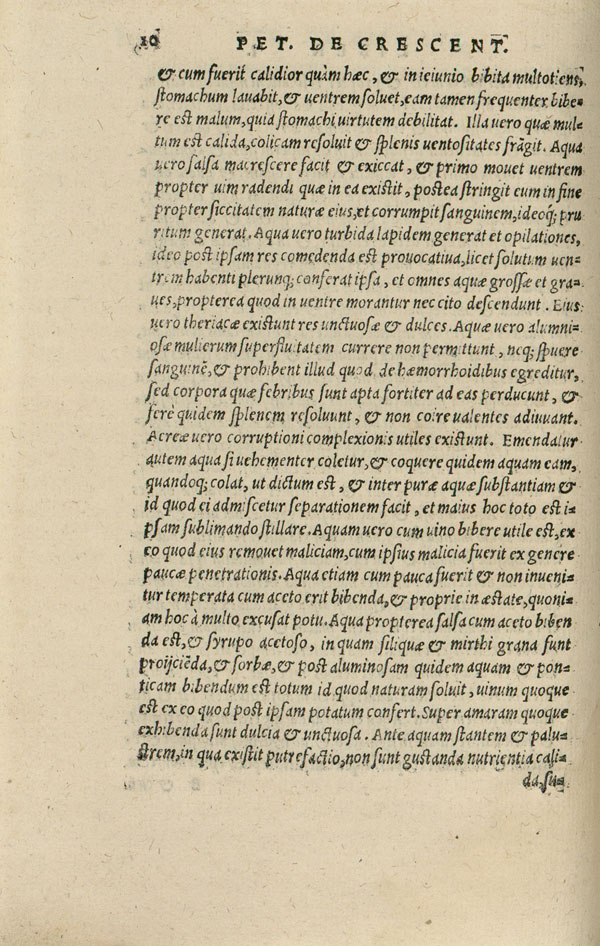 20 PET. DE CRESCENT.
& cum fuerit calidior quàm hæc, & in ieiunio bibita multotiens,
stomachum lauabit, & uentrem soluet, eam tamen frequenter bibe=
re est malum, quia stomachi uirtutem debilitat. Illa uero quæ mul=
tum est calida, colicam resoluit & splenis uentositates frãgit. Aqua
uero salsa macrescere facit & exiccat, & primo mouet uentrem
propter uim radendi quæ in ea existit, postea stringit cum in fine
propter siccitatem naturæ eius, et corrumpit sanguinem, ideoq; pru
ritum generat. Aqua uero turbida lapidem generat et opilationes,
ideo post ipsam res comedenda est prouocatiua, licet solutum uen=
trem habenti plerunq; conferat ipsa, et omnes aquæ grossæ et gra=
ues, propterea quod in uentre morantur nec cito descendunt. Eius
uero theriacæ existunt res unctuosæ & dulces. Aquæ uero alumni=
osæ mulierum superfluitatem currere non permittunt, neq; spuere
sanguinẽ, & prohibent illud quod de hæmorrhoidibus egreditur,
sed corpora quæ febribus sunt apta fortiter ad eas perducunt, &
ferè quidem splenem resoluunt, & non coire ualentes adiuuant.
Aereæ uero corruptioni complexionis utiles existunt. Emendatur
autem aqua si uehementer coletur, & coquere quidem aquam eam,
quandoq; colat, ut dictum est, & inter puræ aquæ substantiam &
id quod ei admiscetur separationem facit, et maius hoc toto est i=
psam sublimando stillare. Aquam uero cum uino bibere utile est, ex
eo quod eius remouet maliciam, cum ipsius malicia fuerit ex genere
paucæ penetrationis. Aqua etiam cum pauca fuerit & non inueni=
tur temperata cum aceto erit bibenda, & proprie in æstate, quoni=
am hoc à multo excusat potu. Aqua propterea salsa cum aceto biben
da est, & syrupo acetoso, in quam siliquæ & mirthi grana sunt
proijciẽda, & sorbæ, & post aluminosam quidem aquam & pon=
ticam bibendum est totum id quod naturam soluit, uinum quoque
est ex eo quod post ipsam potatum confert. Super amaram quoque
exhibenda sunt dulcia & unctuosa. Ante aquam stantem & palu=
strem, in qua existit putrefactio, non sunt gustanda nutrientia cali=
da, su=